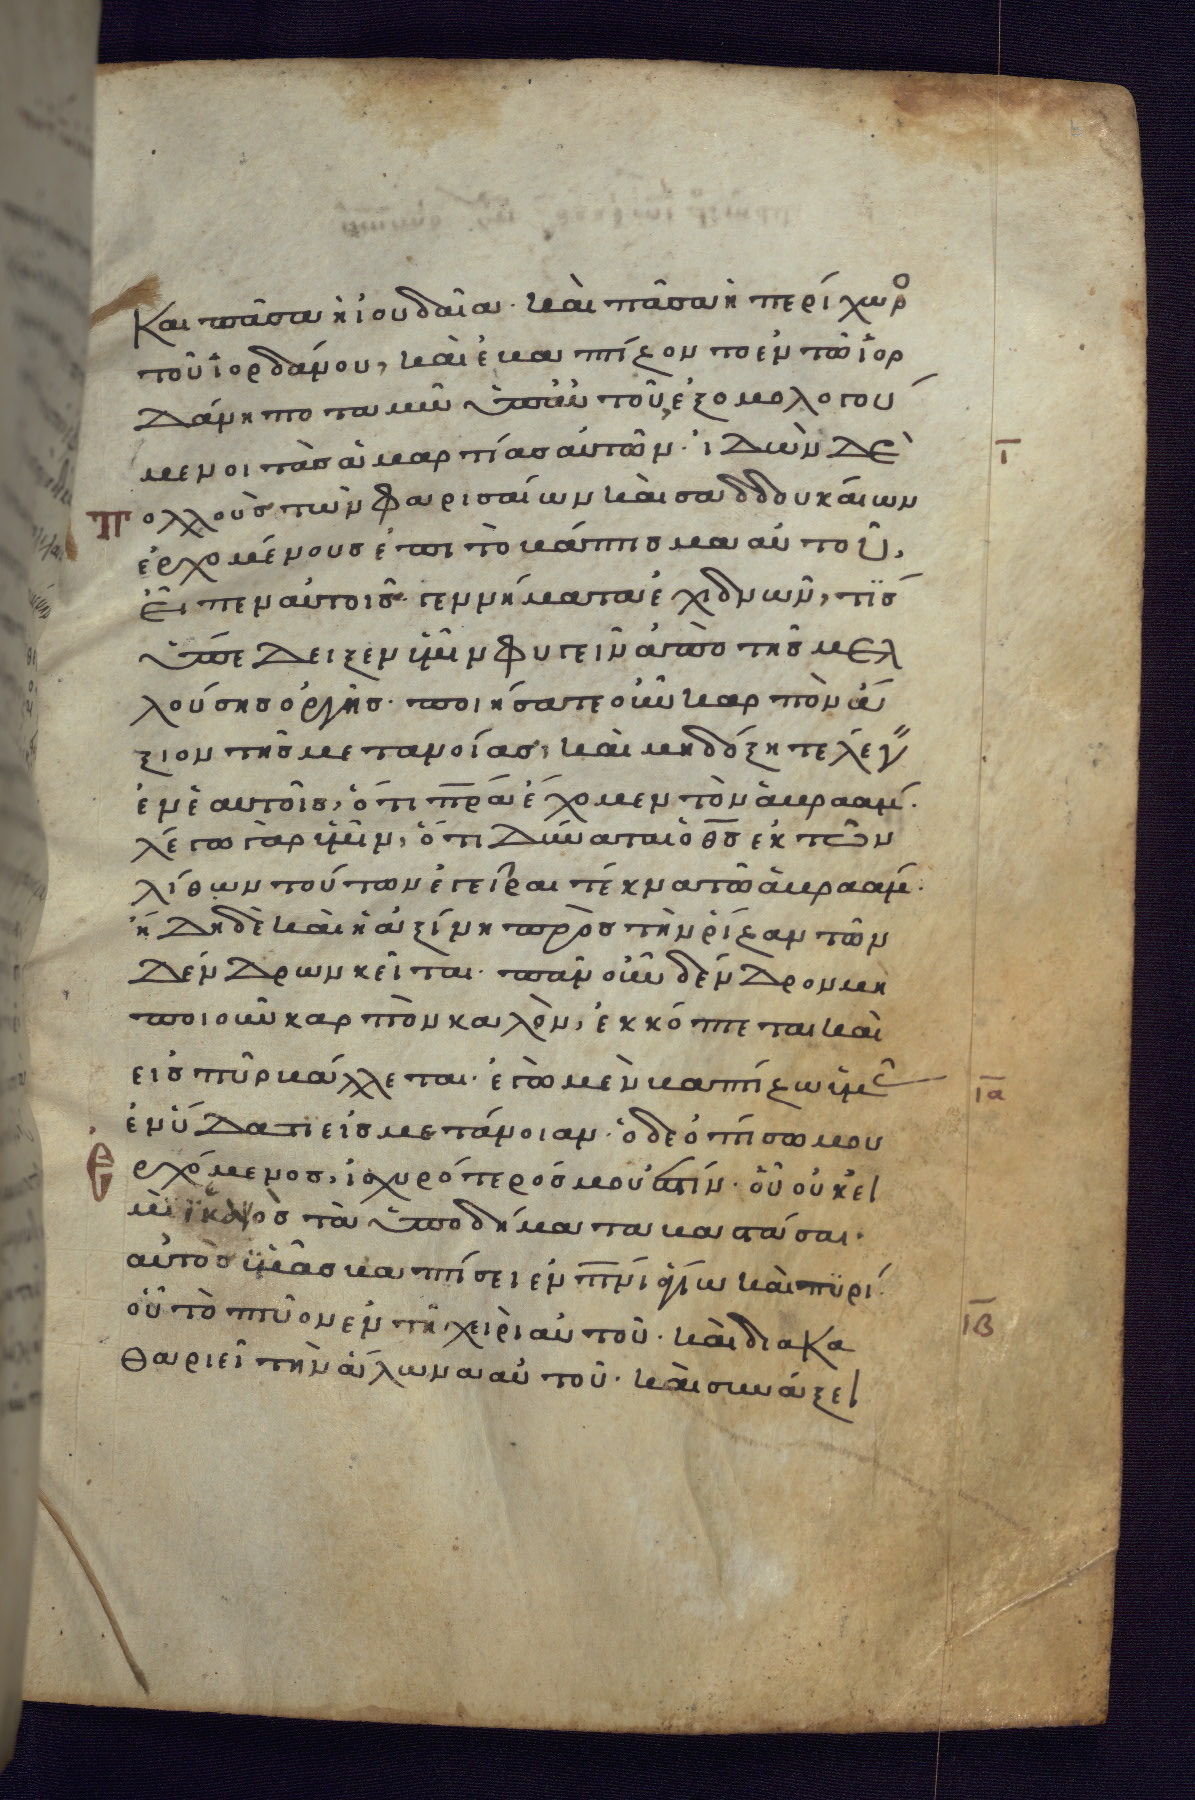 Και πᾶσα ἡ ἰουδαῖα· καὶ πᾶσα ἡ περίχωρο
τοῦ ἰορδάνου, καὶ ἐβαπτίζοντο ἐν τῶ ἰορ
δάνη ποταμῶ ὑπ' αὐτοῦ, ἐξομολογού
μενοι τὰσ ἁμαρτίασ αὐτῶν· ἰδὼν δὲ
Πολλοὺσ τῶν φαρισαίων καὶ σαδδουκαίων
ἐρχομένουσ ἐπι τὸ βάπτισμα αὐτοῦ,
εἶπεν αὐτοισ· γεννήματα ἐχιδνῶν, τίσ
ὑπέδειξεν ὑμῖν φυγεῖν ἀπὸ τῆσ μελ
λούσησ ὀργῆσ· ποιήσατε οὖν καρπὸν ἄ
ξιον τῆσ μετανοίασ, καὶ μὴ δόξητε λέγ
ἐν ἑαυτοῖσ, ὅτι πρα ἔχομεν τὸν ἀβρααμ·
λέγω γὰρ ὑμῖν, ὅτι δύναται ὁ θσ ἐκ τῶν
λίθων τούτων ἐγεῖραι τέκνα τῶ ἀβρααμ·
ἤδη δὲ καὶ ἡ ἀξίνη πρὸσ τὴν ρίζαν τῶν
δένδρων κεῖται· πᾶν οὖν δένδρον μὴ
ποιοῦν καρπὸν καλὸν, ἐκκόπτεται καὶ
εἰσ πῦρ βάλλεται· ἐγὼ μὲν βαπτίζω ὑμᾶσ
ἐν ὕδατι εἰσ μετάνοιαν· ὁ δε ὀπίσω μου
Ἐρχόμενοσ, ἰσχυρότερόσ μου ἐστίν· οὗ οὐκ εἰ
μὶ ἱκανὸσ τὰ ὑποδήματα βαστάσαι·
αὐτὸσ ὑμᾶσ βαπτίσει ἐν πνι ἁγίω καὶ πυρί·
οὗ τὸ πτῦον ἐν τῆ χειρὶ αὐτοῦ· καὶ διακα
θαριεῖ τὴν ἅλωνα αὐτοῦ· καὶ συνάξει
ι
ια
ιβ